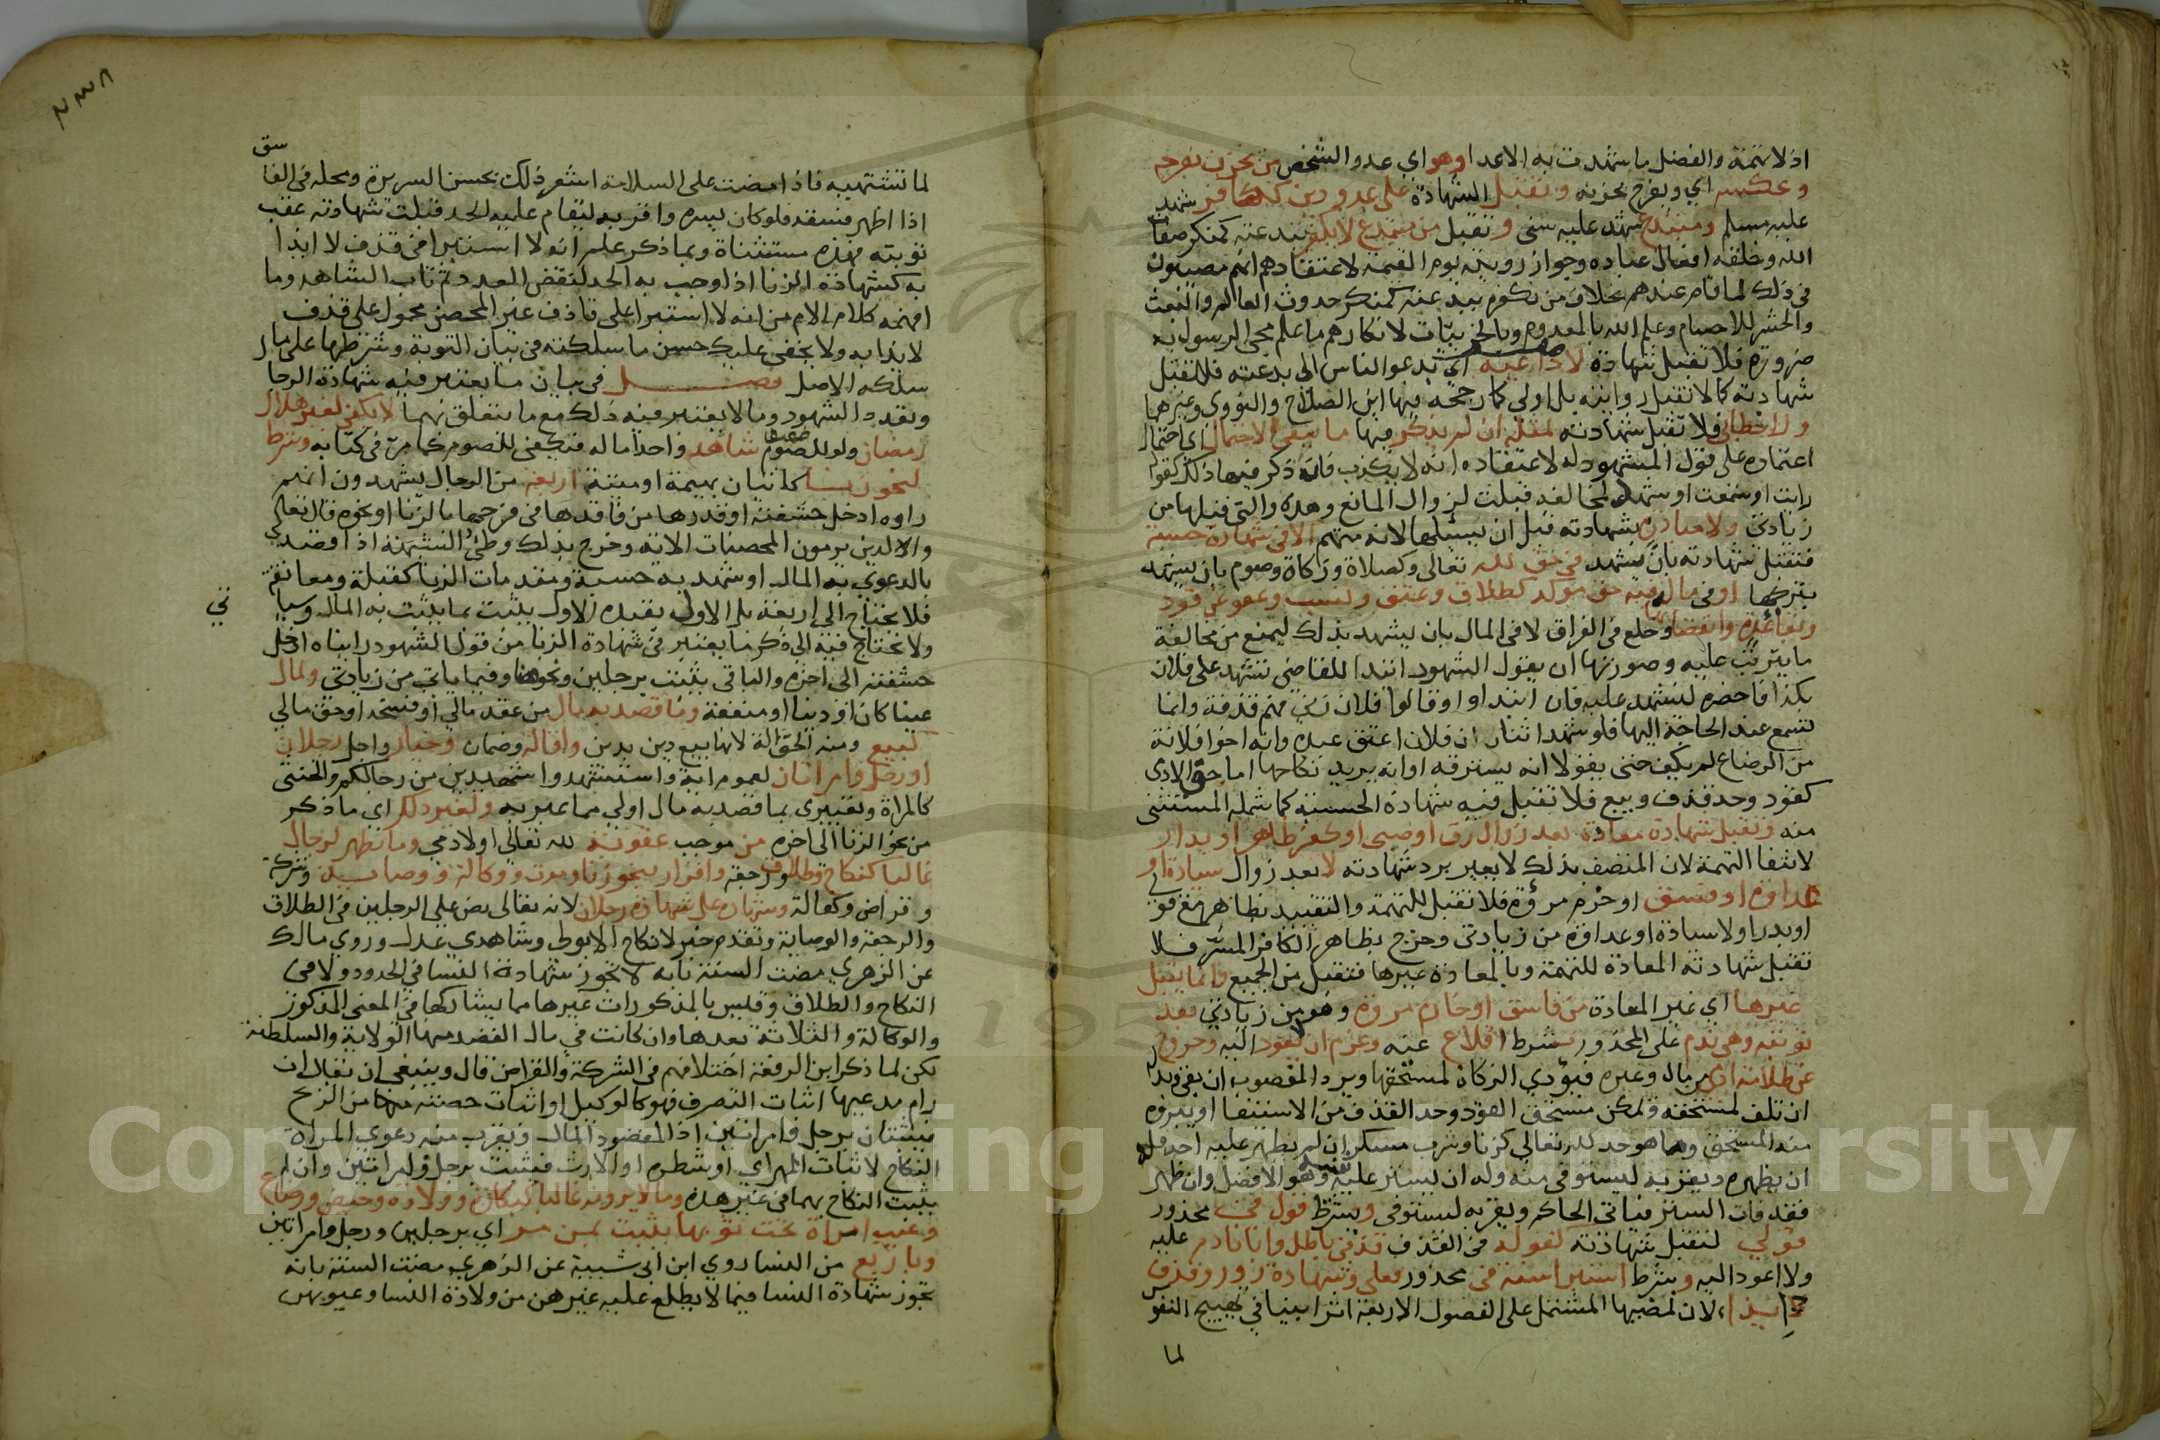 اذ لا تهمة والفضل ما شهدت به الاعدا وهو اي عدو الشخص من يحزن بفرحه
وعكسه اي ويفرح بحزنه وتقبل الشهادة على عدو دين ككافر شهد
عليه مسلم ومبتدع شهد عليه سني وتقبل من مبتدع لا نكفره ببدعته كمنكر صفات
الله وخلقه افعال عباده وجواز رويته يوم القيمة لاعتقادهم انهم مصيبون
في ذلك لما قام عندهم بخلاف من نكفره ببدعته كمنكر حدوث العالم والبعث
والحشر للاجسام وعلم الله بالمعدوم وبالجزييات لانكارهم ما علم مجي الرسول به
ضرورة فلا تقبل شهادة لا داعية اي يدعو الناس الى بدعته فلا تقبل
شهادته كما لا تقبل روايته بل اولى كما رجحه فيها ابن الصلاح والنووي وغيرهما
ولا خطابي فلا تقبل شهادته لمثله ان لم يذكر فيها ما ينفي الاحتمال اي احتمال
اعتماده على قول المشهود له لاعتقاده انه لا يكذب فان ذكر فيها ذلك كقوله
رايت او سمعت او شهد لمخالفه قبلت لزوال المانع وهذه والتي قبلها من
زيادتي ولا مبادر بشهادته قبل ان يسئلها لانه متهم الا في شهادة حسبة
فتقبل شهادته بان يشهد في حق لله تعالى كصلاة وزكاة وصوم بان يشهد
بتركها او في ماله فيه حق موكد كطلاق وعتق ونسب وعفو عن قود
وبقاء عدة وانقضائها وخلع في الفراق لا في المال بان يشهد بذلك ليمنع من مخالفة
ما يترتب عليه وصورتها ان يقول الشهود ابتدا للقاضي نشهد على فلان
بكذا فاحضره لنشهد عليه فان ابتداوا وقالوا فلان زنى فهم قذفة وانما
تسمع عند الحاجة اليها فلو شهد اثنان ان فلان اعتق عبده وانه اخو فلانة
من الرضاع لم يكف حتى يقولا انه يسترقه او انه يريد نكاحها اما حق الادمي
كقود وحد قذف وبيع فلا تقبل فيه شهادة الحسبة كما شمله المستثنى
منه وتقبل شهادة معادة بعد زوال رق او صبى او كفر ظاهر او بدار
لانتفا التهمة لان المتصف بذلك لا يعير برد شهادته لا بعد زوال سيادة او
عداوة او فسق او خرم مروة فلا تقبل للتهمة والتقييد بظاهر مع قولي
او بدر او لا سيادة او عداوة من زيادتي وخرج بظاهر الكافر المسر فلا
تقبل شهادته المعادة للتهمة وبالمعادة غيرها فتقبل من الجميع وانما يقبل
غيرها اي غير المعادة من فاسق او خارم مروة وهو من زيادتي بعد
توبته وهي ندم على المحذور بشرط اقلاع عنه وعزم ان لا يعود اليه وخروج
عن ظلامة ادمي من مال وغيره فيؤدي الزكاة لمستحقها ويرد المغصوب ان بقي وبدله
ان تلف لمستحقه ويمكن مستحق القود وحد القذف من الاستيفا او يبرؤه
منه المستحق وما هو حد لله تعالى كزنا وشرب مسكر ان لم يظهر عليه احد فله
ان يظهره ويقر به ليستوفى منه وله ان يستر على نفسه وهو الافضل وان ظهر
فقد فات الستر فياتي الحاكم ويقر به ليستوفى وبشرط قول في محذور
قولي لتقبل شهادته كقوله في القذف قذفي باطل وانا نادم عليه
ولا اعود اليه وبشرط استبراء سنة في محذور فعلي وشهادة زور وقذف
ايذاء لان لمضيها المشتمل على الفصول الاربعة اثرا بينا في تهييج النفوس
لما
٢٣٨
سق
لما تشتهيه فاذا مضت على السلامة اشعر ذلك بحسن السريرة ومحله في الفا
اذا اظهر فسقه فلو كان يسره واقر به ليقام عليه الحد قبلت شهادته عقب
توبته فهذه مستثناة وبما ذكر علم انه لا استبرا في قذف لا ايذا
به كشهادة الزنا اذا وجب به الحد لنقص العدد ثم تاب الشاهد وما
افهمه كلام الام من انه لا استبرا على قاذف غير المحصن محمول على قذف
لا ايذا به ولا يخفى عليك حسن ما سلكته في بيان التوبة وشرطها على ما
سلكه الاصل فصل في بيان ما يعتبر فيه شهادة الرجا
وتعدد الشهود وما لا يعتبر فيه ذلك مع ما يتعلق بهما لا يكفي لغير هلال
رمضان ولو للصوم شاهد واحد اما له فيكفي للصوم كما مر في كتابه وشرط
لنحو زنا كاتيان بهيمة او ميتة اربعة من الرجال يشهدون انهم
راوه ادخل حشفته او قدرها من فاقدها في فرجها بالزنا او نحوه قال تعالى
والذين يرمون المحصنات الاية وخرج بذلك وطئ الشبهة اذا قصد
بالدعوى به المال او شهد به حسبة ومقدمات الزنا كقبلة ومعانقة
فلا يحتاج الى اربعة بل الاول بقيده الاول يثبت بما يثبت به المال وسياتي
ولا يحتاج فيه الى ذكر ما يعتبر في شهادة الزنا من قول الشهود رايناه ادخل
حشفته الى اخره والباقي يثبت برجلين ونحو هنا وفيما ياتي من زيادتي ولمال
عينا كان او دينا او منفعة وما قصد به مال من عقد مالي او فسخه او حق مالي
كبيع ومنه الحوالة لانها بيع دين بدين واقالة وضمان وخيار واجل رجلان
او رجل وامراتان لعموم اية واستشهدوا شهيدين من رجالكم والخنثى
كالمراة وتعبيري بما قصد به مال اولى مما عبر به ولغير ذلك اي ما ذكر
من نحو الزنا الى اخره من موجب عقوبة لله تعالى او لادمي وما يظهر لرجال
غالبا كنكاح وطلاق ورجعة واقرار بنحو زنا وموت ووكالة ووصاية وشركة
وقراض وكفالة وشهادة على شهادة رجلان لانه تعالى نص على الرجلين في الطلاق
والرجعة والوصاية وتقدم خبر لا نكاح الا بولي وشاهدي عدل وروي مالك
عن الزهري مضت السنة بانه لا تجوز شهادة النسا في الحدود ولا في
النكاح والطلاق وقيس بالمذكورات غيرها مما يشاركها في المعنى المذكور
والوكالة والثلاثة بعدها وان كانت في مال القصد منها الولاية والسلطنة
لكن لما ذكر ابن الرفعة اختلافهم في الشركة والقراض قال وينبغي ان يقال ان
رام مدعيها اثبات التصرف فهو كالوكيل او اثبات حصته منها من الربح
فيثبتان برجل وامراتين اذ المقصود المال ويقرب منه دعوى المراة
النكاح لاثبات المهر اي او شطره او الارث فيثبت برجل وامراتين وان لم
يثبت النكاح بهما في غير هذه وما لا يرونه غالبا كبكارة وولادة وحيض ورضاع
وعيب امراة تحت ثوبها يثبت بمن مر اي برجلين ورجل وامراتين
وباربع من النسا روي ابن ابي شيبة عن الزهري مضت السنة بانه
تجوز شهادة النسا فيما لا يطلع عليه غيرهن من ولادة النسا وعيوبهن